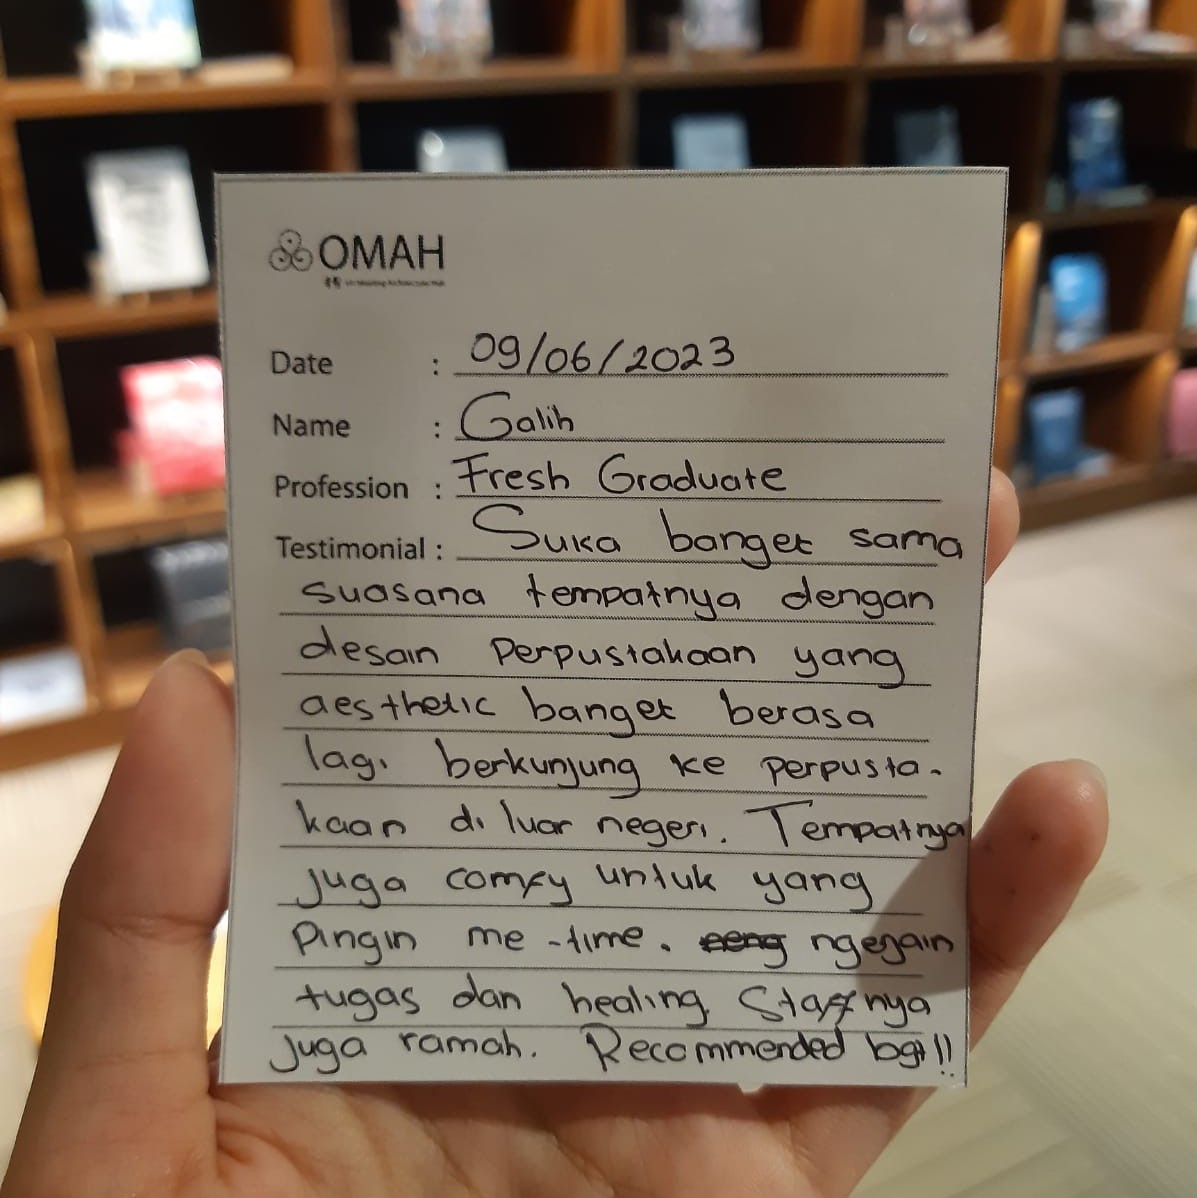 OMAH
Date : 09/06/2023
Name : Galih
Profession : Fresh Graduate
Testimonial : Suka banget sama
suasana tempatnya dengan
desain perpustakaan yang
aesthetic banget berasa
lagi berkunjung ke perpusta-
kaan di luar negeri. Tempatnya
juga comfy untuk yang
pingin me-time. ngerjain
tugas dan healing. Staffnya
juga ramah. Recommended bgt!!